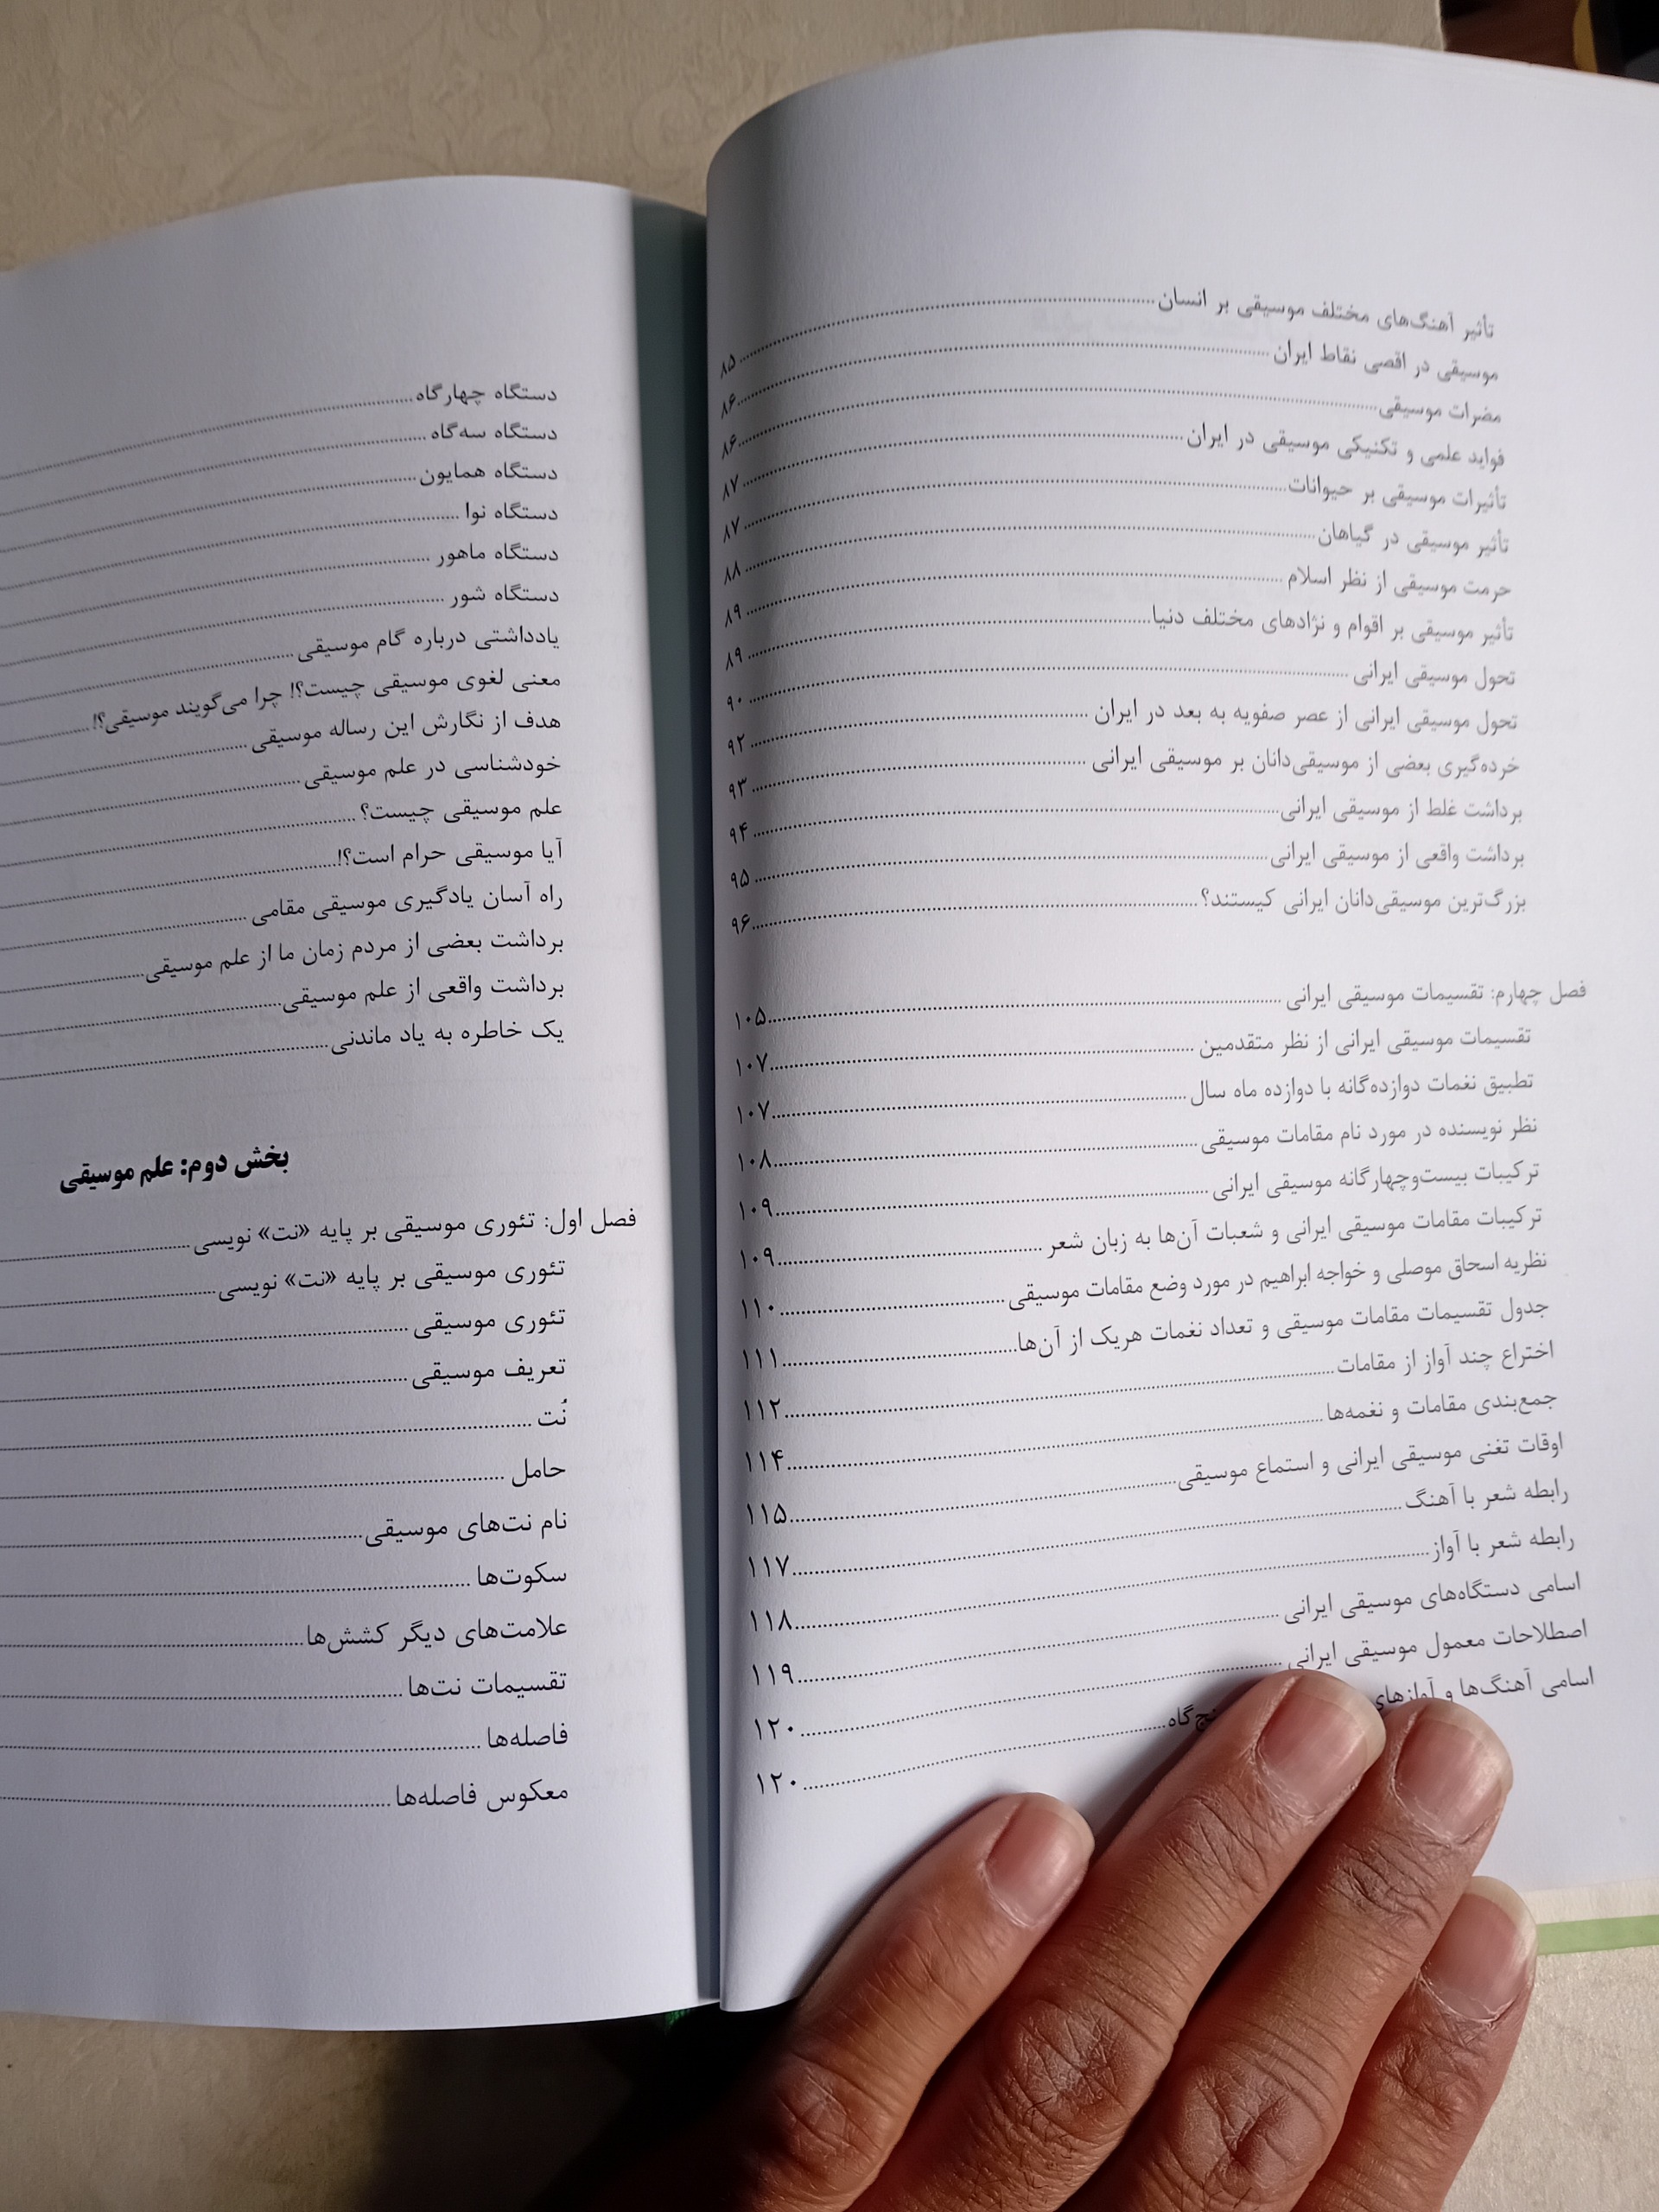 تأثیر آهنگ‌های مختلف موسیقی بر انسان ۸۵
موسیقی در اقصی نقاط ایران ۸۶
مضرات موسیقی ۸۶
فواید علمی و تکنیکی موسیقی در ایران ۸۷
تأثیرات موسیقی بر حیوانات ۸۷
تأثیر موسیقی در گیاهان ۸۸
حرمت موسیقی از نظر اسلام ۸۹
تأثیر موسیقی بر اقوام و نژادهای مختلف دنیا ۸۹
تحول موسیقی ایرانی ۹۰
تحول موسیقی ایرانی از عصر صفویه به بعد در ایران ۹۲
خرده‌گیری بعضی از موسیقی‌دانان بر موسیقی ایرانی ۹۳
برداشت غلط از موسیقی ایرانی ۹۴
برداشت واقعی از موسیقی ایرانی ۹۵
بزرگ‌ترین موسیقی‌دانان ایرانی کیستند؟ ۹۶
فصل چهارم: تقسیمات موسیقی ایرانی ۱۰۵
تقسیمات موسیقی ایرانی از نظر متقدمین ۱۰۷
تطبیق نغمات دوازده‌گانه با دوازده ماه سال ۱۰۷
نظر نویسنده در مورد نام مقامات موسیقی ۱۰۸
ترکیبات بیست‌وچهارگانه موسیقی ایرانی ۱۰۹
ترکیبات مقامات موسیقی ایرانی و شعبات آن‌ها به زبان شعر ۱۰۹
نظریه اسحاق موصلی و خواجه ابراهیم در مورد وضع مقامات موسیقی ۱۱۰
جدول تقسیمات مقامات موسیقی و تعداد نغمات هریک از آن‌ها ۱۱۱
اختراع چند آواز از مقامات ۱۱۲
جمع‌بندی مقامات و نغمه‌ها ۱۱۴
اوقات تغنی موسیقی ایرانی و استماع موسیقی ۱۱۵
رابطه شعر با آهنگ ۱۱۷
رابطه شعر با آواز ۱۱۸
اسامی دستگاه‌های موسیقی ایرانی ۱۱۹
اصطلاحات معمول موسیقی ایرانی ۱۲۰
اسامی آهنگ‌ها و آوازهای ۱۲۰
دستگاه چهارگاه
دستگاه سه‌گاه
دستگاه همایون
دستگاه نوا
دستگاه ماهور
دستگاه شور
یادداشتی درباره گام موسیقی
معنی لغوی موسیقی چیست؟! چرا می‌گویند موسیقی؟!
هدف از نگارش این رساله موسیقی
خودشناسی در علم موسیقی
علم موسیقی چیست؟
آیا موسیقی حرام است؟!
راه آسان یادگیری موسیقی مقامی
برداشت بعضی از مردم زمان ما از علم موسیقی
برداشت واقعی از علم موسیقی
یک خاطره به یاد ماندنی
بخش دوم: علم موسیقی
فصل اول: تئوری موسیقی بر پایه «نت» نویسی
تئوری موسیقی بر پایه «نت» نویسی
تئوری موسیقی
تعریف موسیقی
نُت
حامل
نام نت‌های موسیقی
سکوت‌ها
علامت‌های دیگر کشش‌ها
تقسیمات نت‌ها
فاصله‌ها
معکوس فاصله‌ها